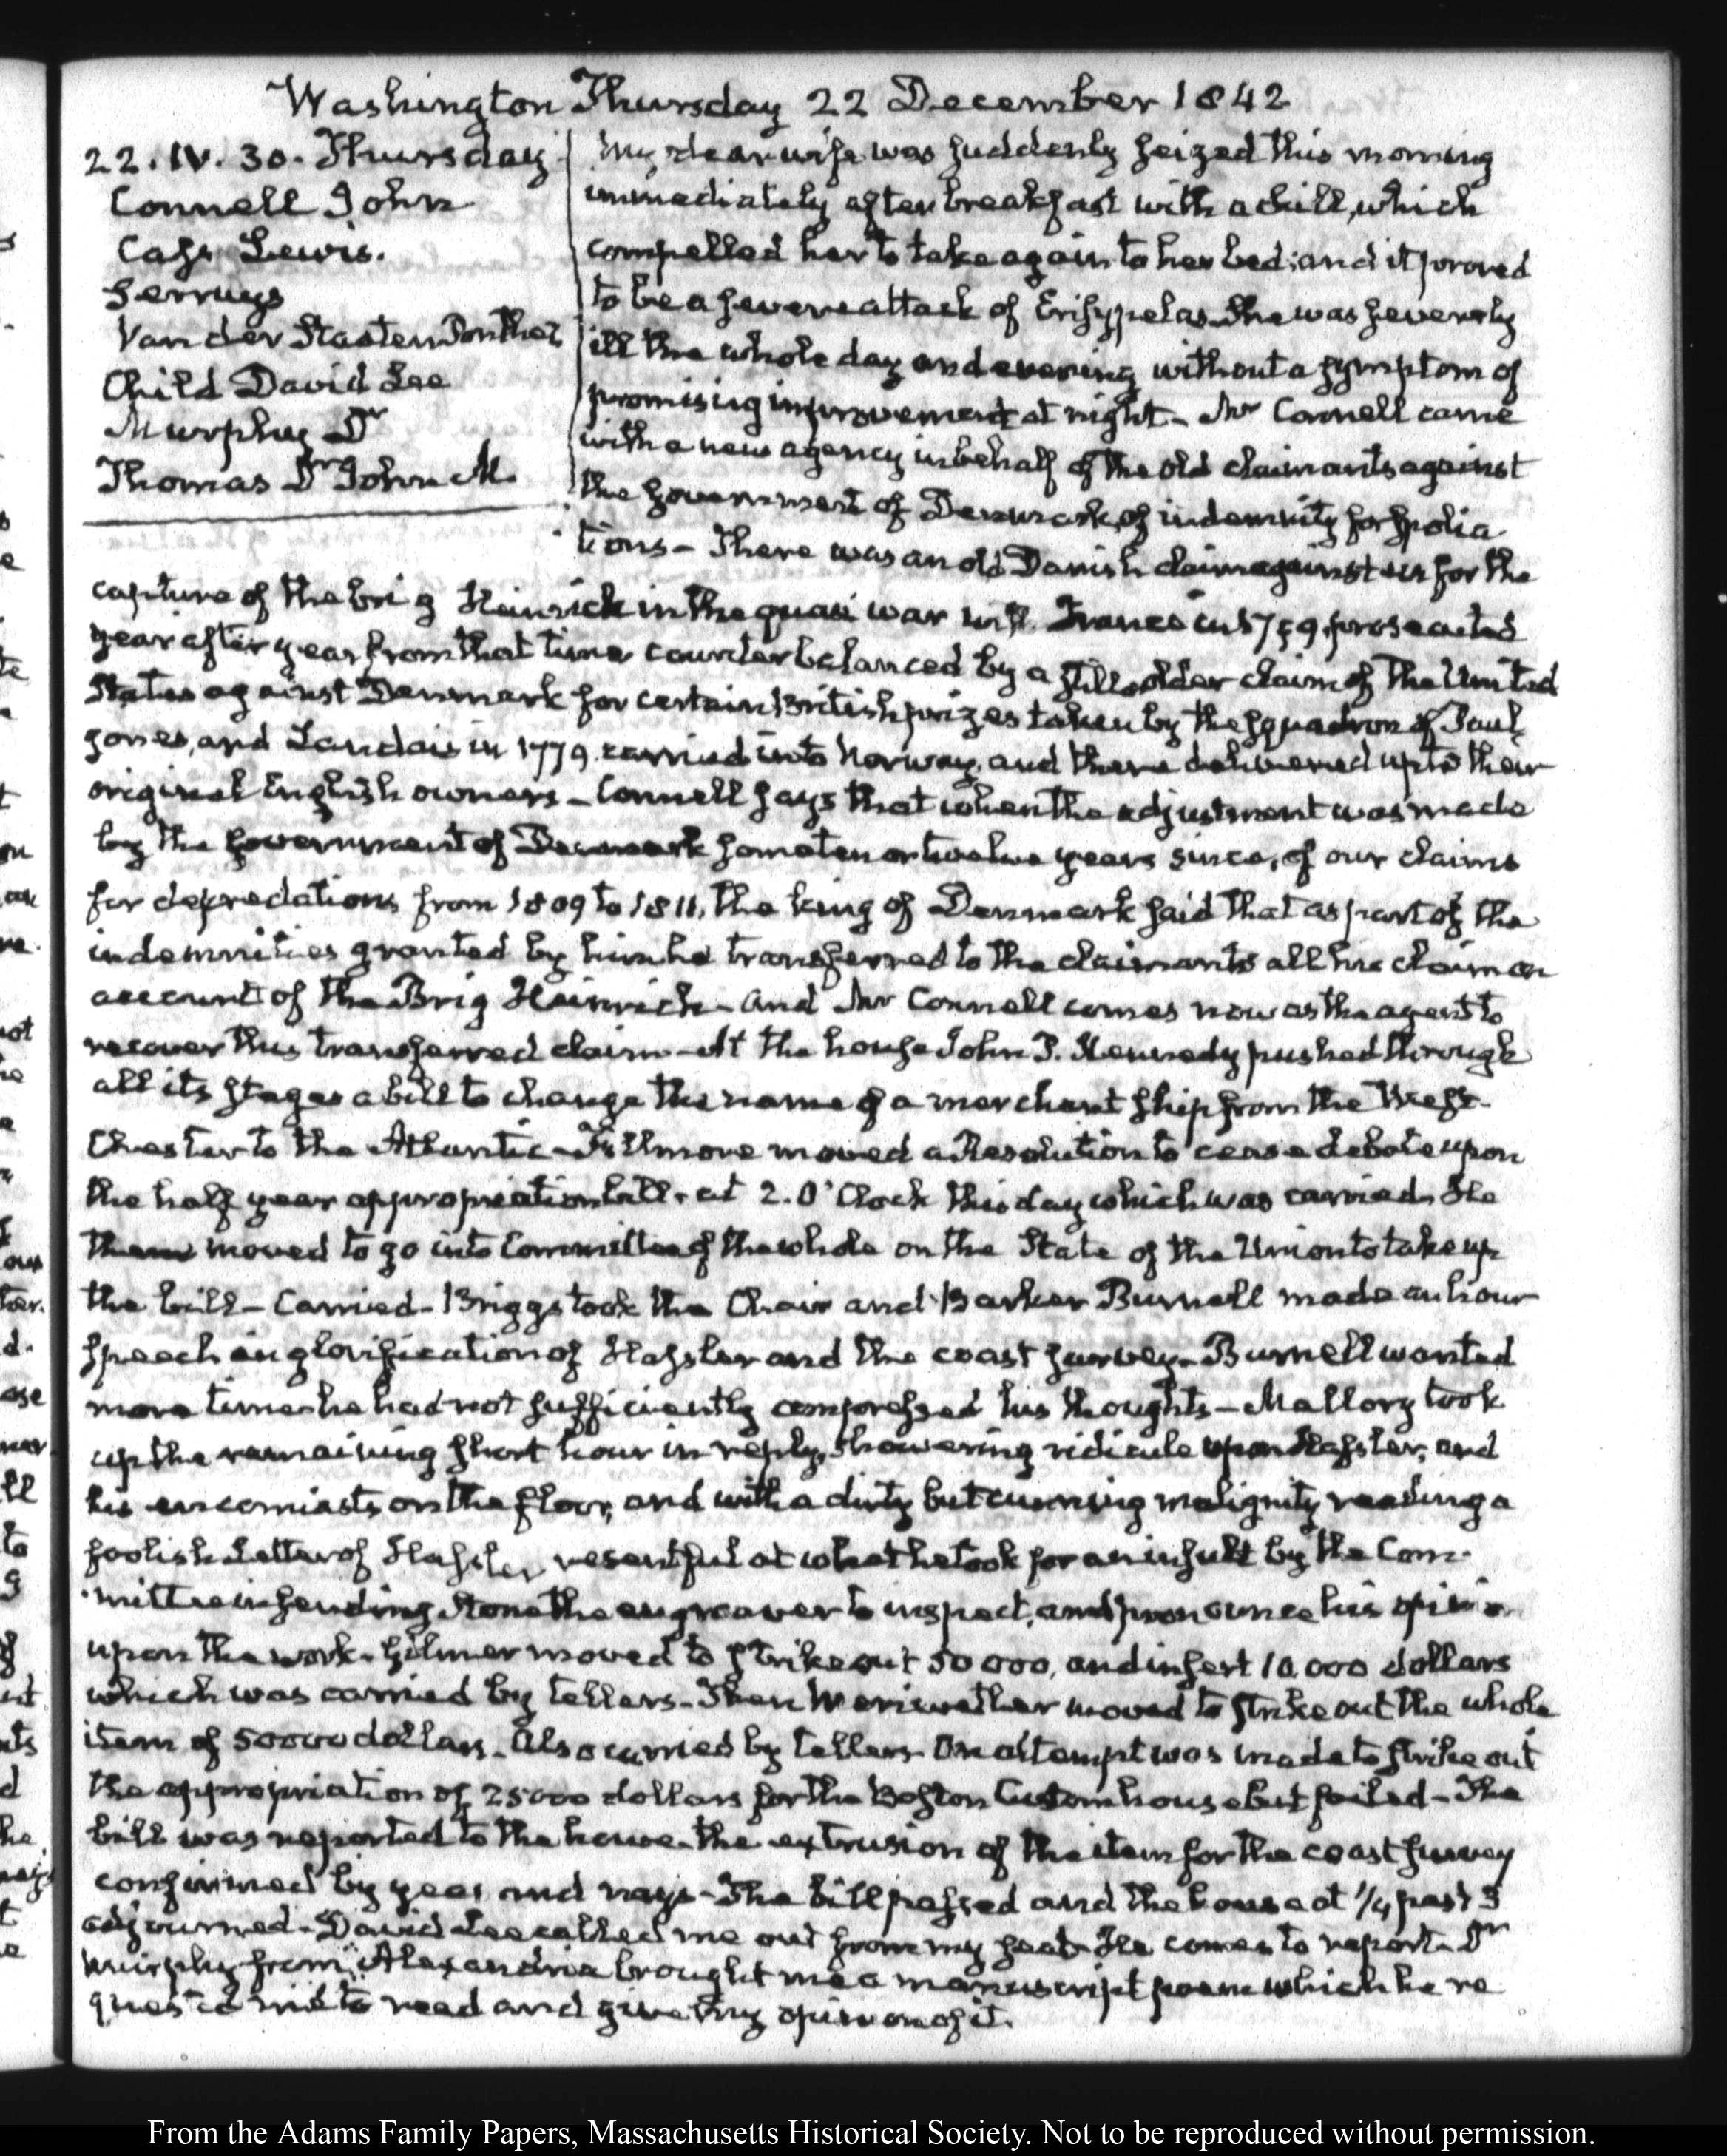 Washington Thursday 22 December 1842
22. IV. 30. Thursday
Connell John
Cass Lewis.
Serruys
Van der Straten Ponthoz
Child David Lee
Murphy Dr
Thomas Dr John M.
My dear wife was suddenly seized this morning
immediately after breakfast with a chill, which
compelled her to take again to her bed; and it proved
to be a severe attack of Erisypelas. She was severely
ill the whole day and evening without a symptom of
promising improvement at night- Mr Connell came
with a new agency in behalf of the old claimants against
the government of Denmark, of indemnity for spolia
tions- There was an old Danish claim against us for the
capture of the brig Heinrich in the quasi war with France in 1799, prosecuted
year after year from that time counterbalanced by a still older claim of the United
States against Denmark for certain British prizes taken by the squadron of Paul
Jones, and Landais in 1779. carried into Norway, and there delivered up to their
original English owners- Connell says that when the adjustment was made
by the government of Denmark some ten or twelve years since, of our claims
for depredations from 1809 to 1811, the king of Denmark said that as part of the
indemnities granted by him he transferred to the claimants all his claim on
account of the Brig Heinrich- and Mr Connell comes now as the agent to
recover this transferred claim- At the house John P. Kennedy pushed through
all its stages a bill to change the name of a merchant ship from the West-
Chester to the Atlantic- Fillmore moved a Resolution to cease debate upon
the half year appropriation bill, at 2. O'Clock this day which was carried. He
then moved to go into Committee of the whole on the State of the Union to take up
the bill- Carried- Briggs took the Chair and Barker Burnell made an hour
speech in glorification of Hassler and the coast survey- Burnell wanted
more time- he had not sufficiently compressed his thoughts- Mallory took
up the remaining short hour in reply, showering ridicule upon Hassler, and
his encomiasts on the floor, and with a dirty but cunning malignity reading a
foolish Letter of Hassler resentful at what he took for an insult by the Com-
mittee in sending Stone the engraver to inspect, and pronounce his opinion
upon the work- Gilmer moved to strike out 50 000, and insert 10.000 dollars
which was carried by tellers- Then Meriwether moved to strike out the whole
item of 50000 dollars- Also carried by tellers- One attempt was made to strike out
the appropriation of 25000 dollars for the Boston Custom house but failed- The
bill was reported to the house- the extrusion of the item for the coast survey
confirmed by yeas and nays- The bill passed and the house at 1/4 past 3
adjourned- David Lee called me out from my seat- He comes to report- Dr
Murphy from Alexandria brought me a manuscript poem which he re
quested me to read and give my opinion of it.
From the Adams Family Papers, Massachusetts Historical Society. Not to be reproduced without permission.